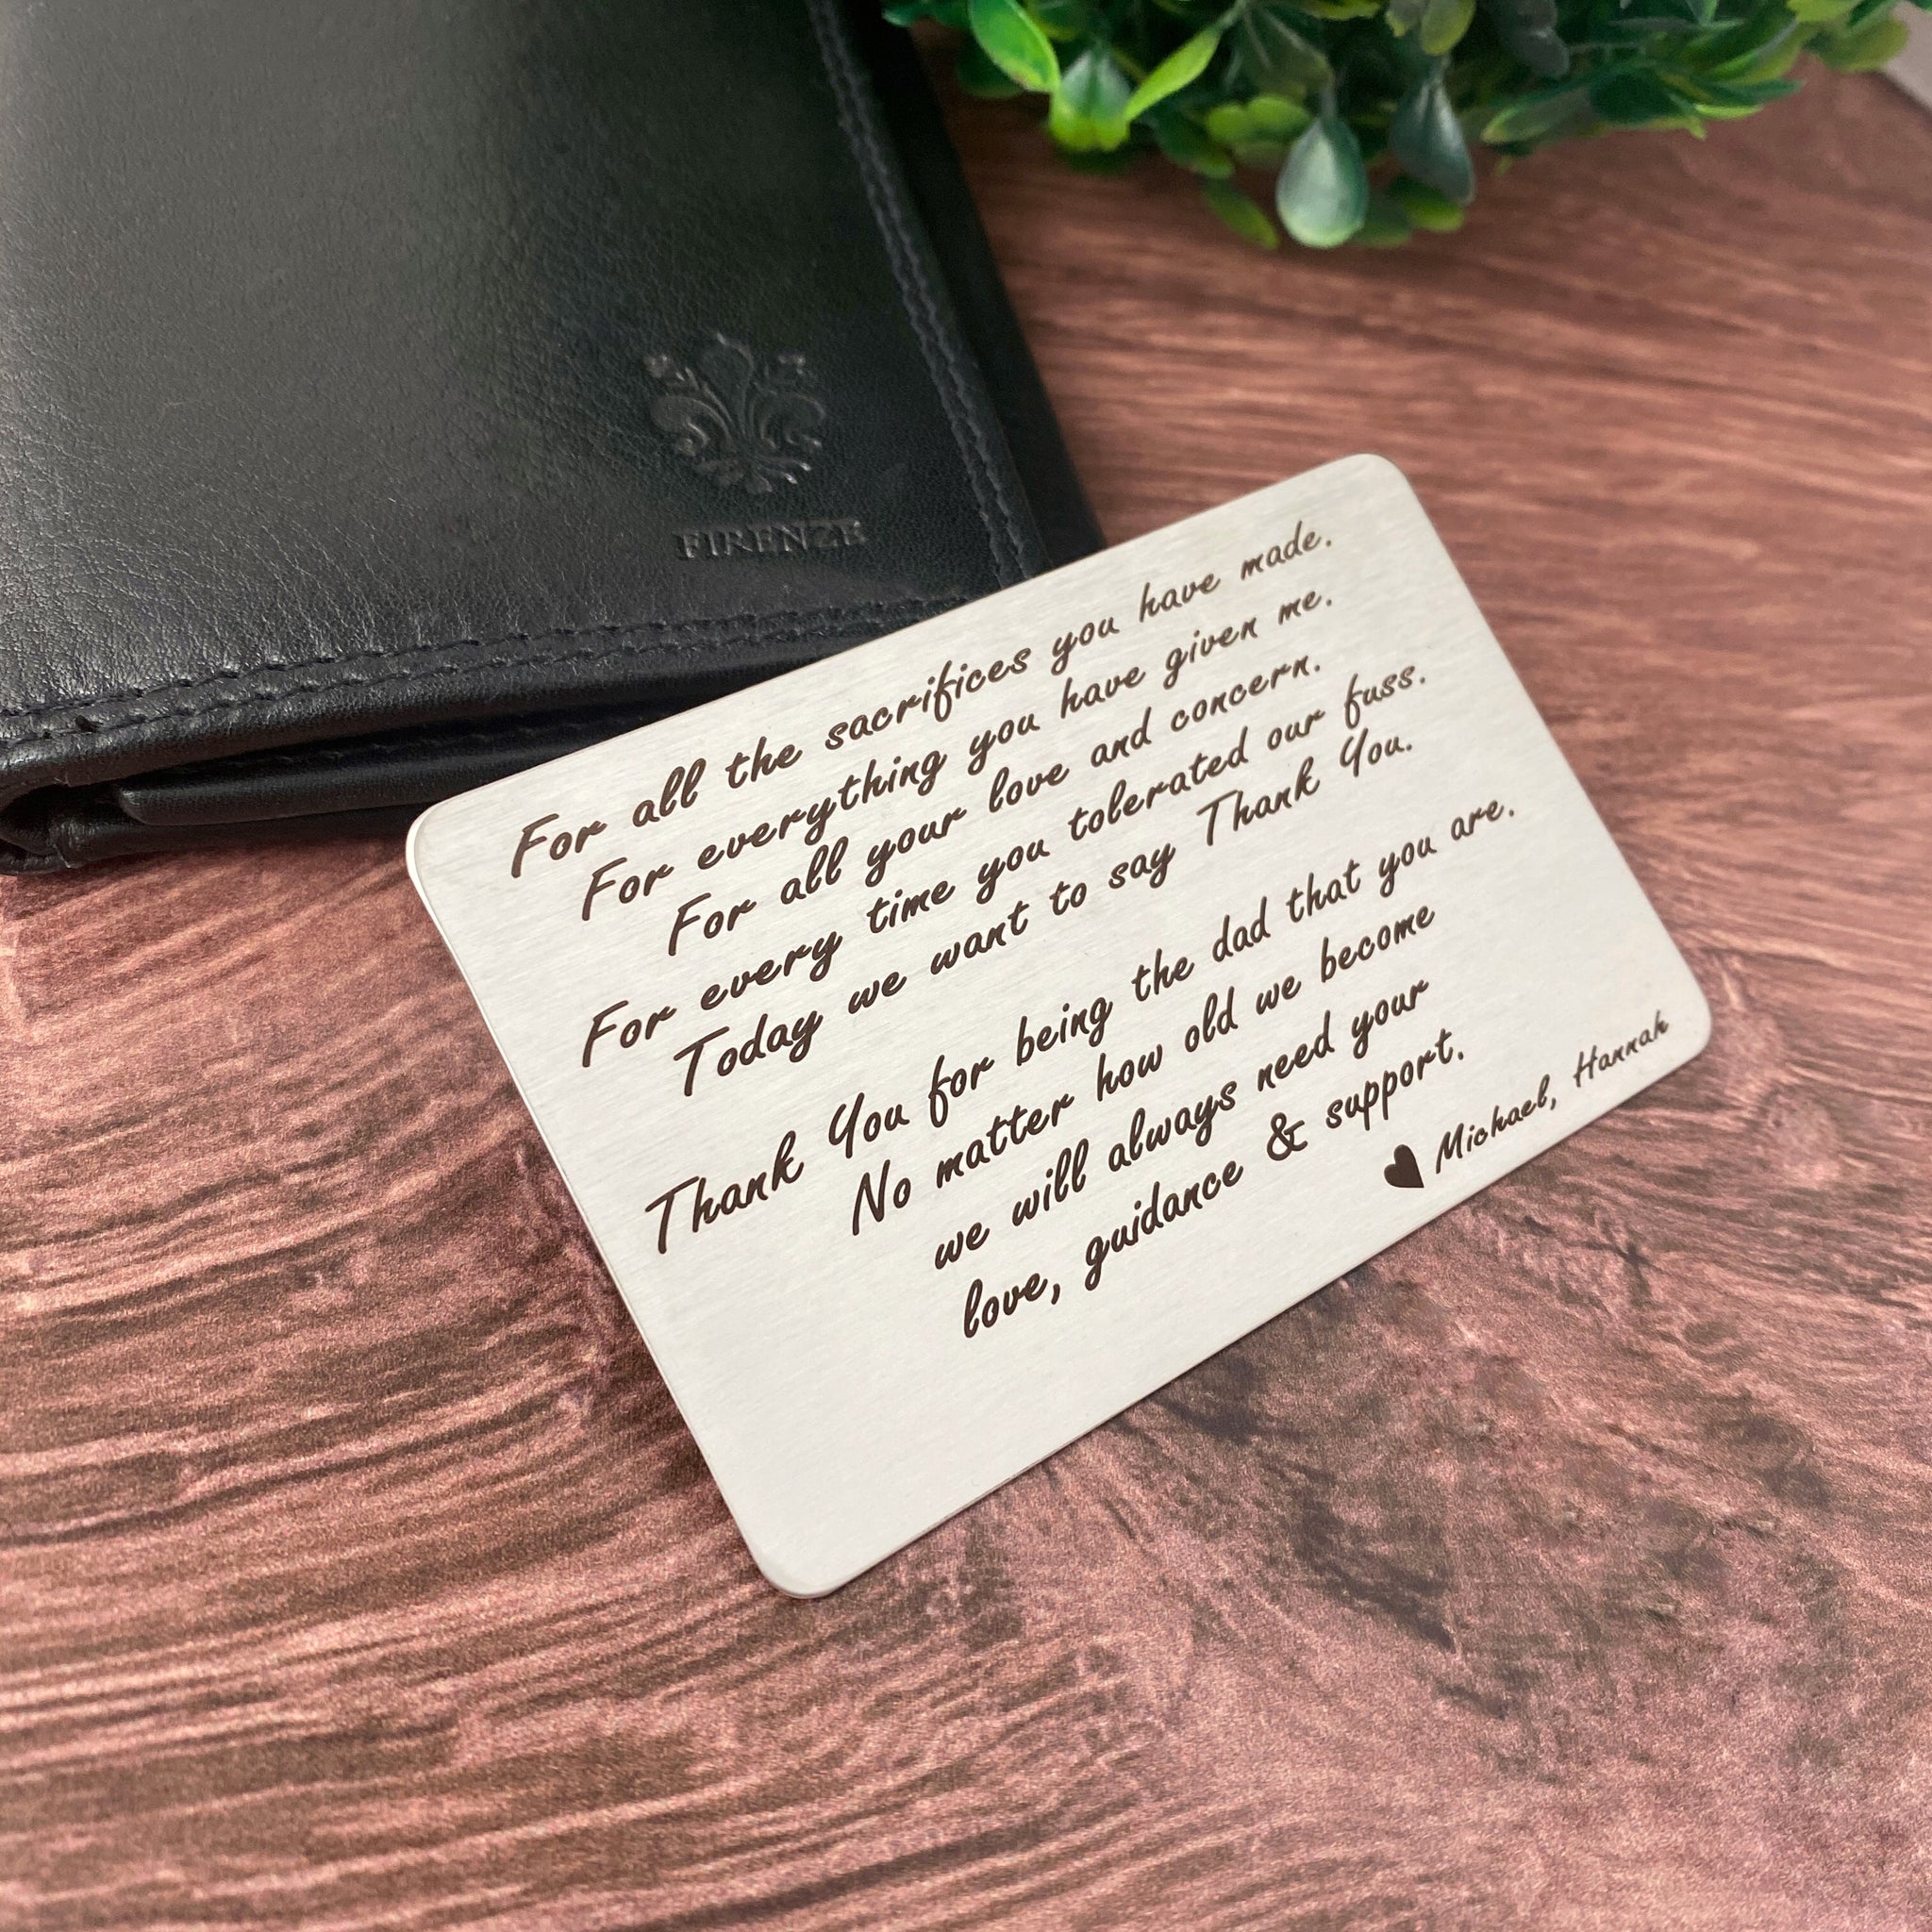 FIRENZE
For all the sacrifices you have made.
For everything you have given me.
For all your love and concern.
For every time you tolerated our fuss.
Today we want to say Thank You.
Thank You for being the dad that you are.
No matter how old we become
we will always need your
love, guidance & support.
♥ Michael, Hannah